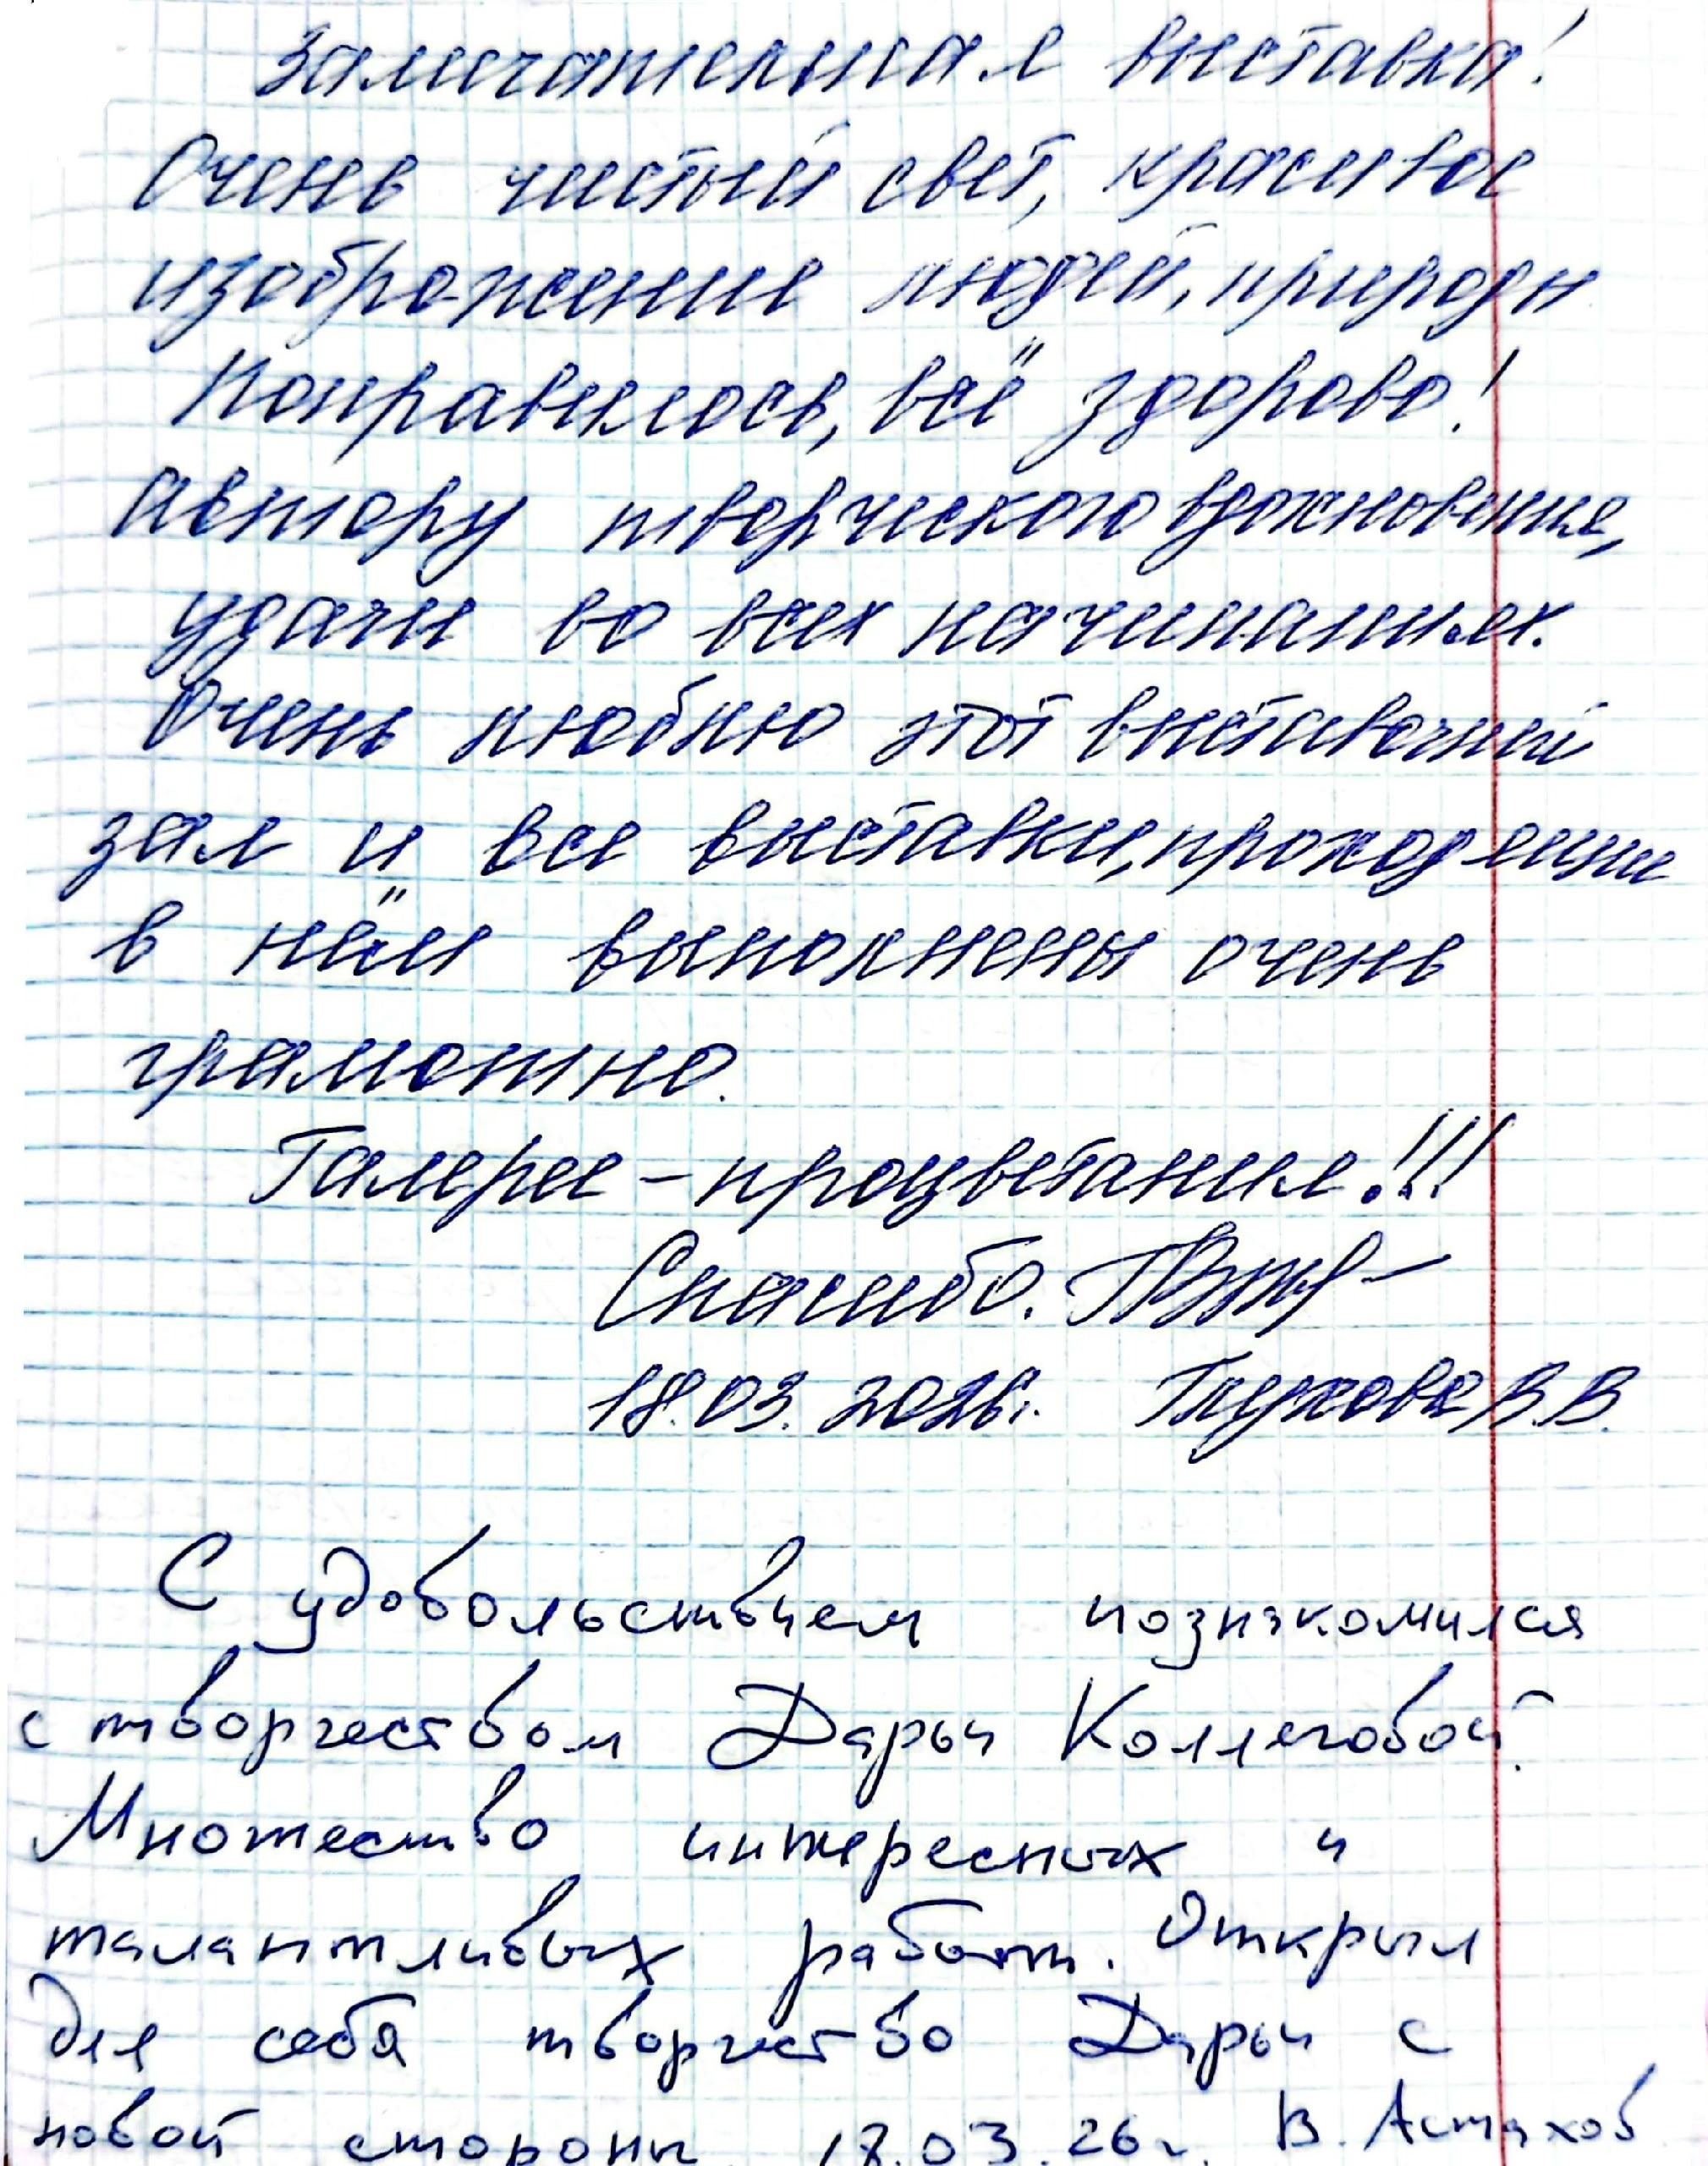 Замечательная выставка!
Очень чистый свет, красивое
изображение людей, природы
Понравилось, всё здорово!
Автору творческого вдохновения,
удачи во всех начинаниях.
Очень люблю этот выставочный
зал и все выставки, проходящие
в нём выполнены очень
грамотно.
Галерее – процветания!!!
Спасибо.
18.03.2026г. Глухова В.В.
С удовольствием познакомился
с творчеством Дарьи Коллеговой.
Множество интересных и
талантливых работ. Открыл
для себя творчество Дарьи с
новой стороны. 18.03.26г. В. Астахов